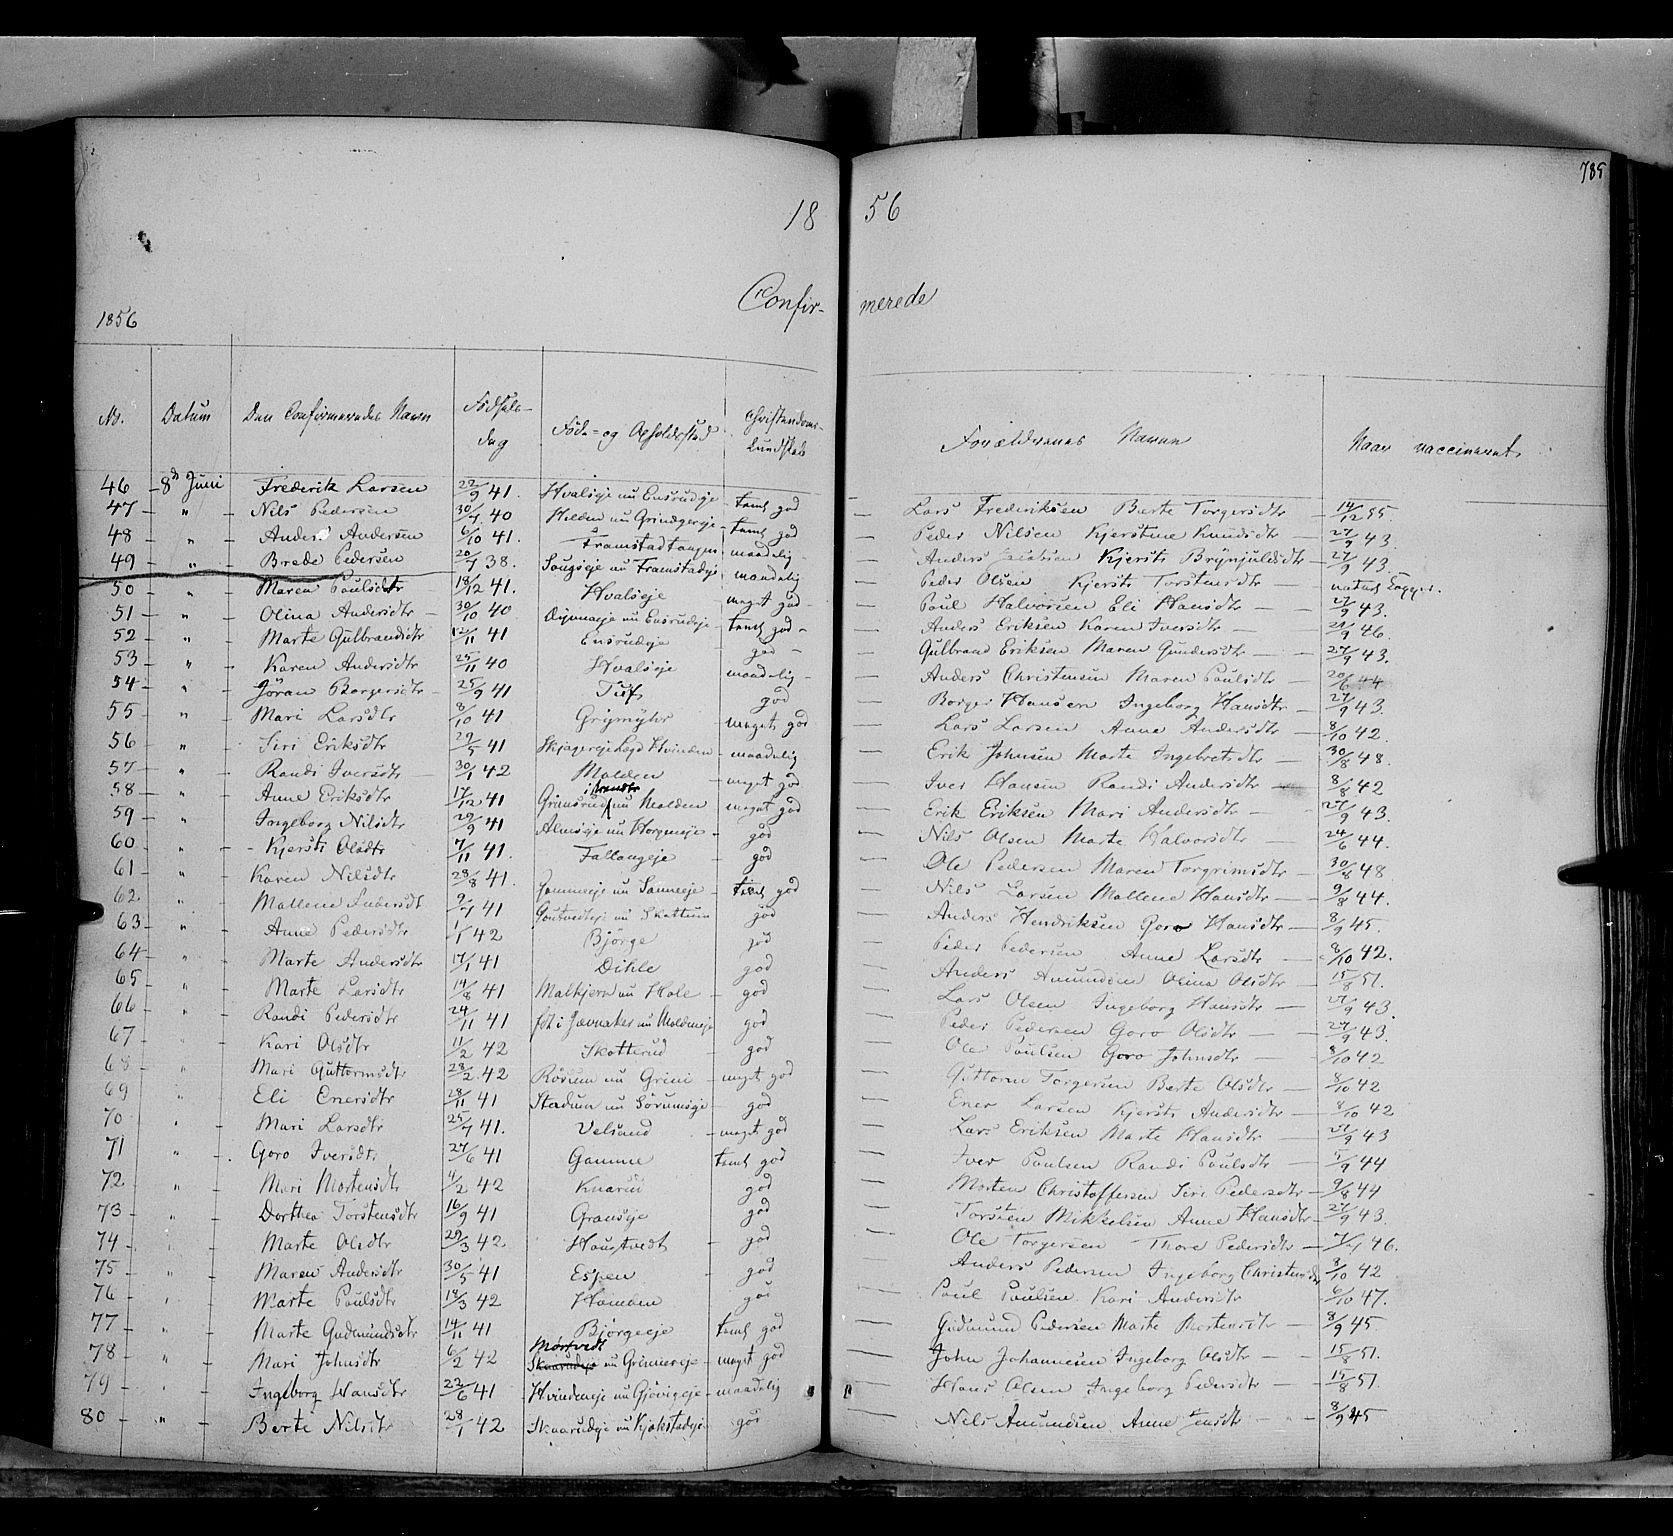 789
18 56
Confir- merede
1856
No. Datum Den Confirmeredes Navn Fødsels-dag Føde- og Opholdssted Christendoms-kundskab Forældrenes Navne Naar vaccineret
46 8de Juni Frederik Larsen 22/9 41. Hvalseje nu Ensrudeje temt god Lars Frederiksen Berte Torgersdtr 14/12 55.
47 " Nils Pedersen 30/7 40 Molden nu temt god Peder Nilsen Kjerstine Knudsdtr 27/9 43.
48 " Anders Andersen 6/10 41. Framstadtangen maadelig Anders Jacobsen Kjersti Brynjulsdtr 27/9 43.
49 " Brede Pedersen 20/7 38. nu Framstadeje maadelig Peder Olsen Kjersti Torstensdtr naturl. Kopper.
50 " Maren Poulsdtr 18/12 41. Hvalseje meget god Poul Halvorsen Eli Hansdtr 27/9 43.
51 " Olina Andersdtr 30/10 40 nu Ensrudeje temt god Anders Eriksen Karen Iversdtr 46.
52 " Marte Gulbrandsdtr 12/11 41 Ensrudeje god Gulbrand Eriksen Maren Gundersdtr 27/9 43.
53 " Karen Andersdtr 25/11 40 Hvalseje maadelig Anders Christensen Maren Poulsdtr 20/6 44
54 " Jöran Borgersdtr 25/9 41 god Borger Hansen Ingeborg Hansdtr 27/9 43.
55 " Mari Larsdtr 8/10 41 Grymyhr meget god Lars Larsen Anne Andersdtr 8/10 42.
56 " Siri Eriksdtr 29/5 41 Hvinden maadelig Erik Johnsen Marte Ingebretsdtr 30/8 48.
57 " Randi Iversdtr 30/1 42 Molden meget god Iver Hansen Randi Andersdtr 8/8 42
58 " Anne Eriksdtr 17/12 41 Grinsrud i Brandbu nu Molden meget god Erik Eriksen Mari Andersdtr 27/9 43.
59 " Ingeborg Nilsdtr 29/9 41 Almseje nu Horgeneje god Nils Olsen Marte Halvorsdtr 24/6 44.
60 " Kjersti Olsdtr 7/11 41. Fallangeje god Ole Pedersen Maren Torgrimsdtr 30/8 48
61 " Karen Nilsdtr 28/8 41. nu Sanneeje temt god Nils Larsen Mallene Hansdtr 9/8 44.
62 " Mallene 9/7 41 nu Skattum god Anders Hendriksen Goro Hansdtr 8/9 45.
63 " Anne Pedersdtr 1/1 42 Bjørge god Peder Pedersen Anne Larsdtr 8/10 42.
64 " Marte Andersdtr 17/1 41 Dihle god Anders Amundsen Olina Olsdtr 15/8 51.
65 " Marte Larsdtr 14/8 41 Malkjern nu Hole god Lars Olsen Ingeborg Hansdtr 27/9 43.
66 " Randi Pedersdtr 24/11 41 fdt i Jevnaker nu Moldeneje god Peder Pedersen Goro Olsdtr 27/9 43.
67 " Kari Olsdtr 11/2 42 Skotterud god Ole Poulsen Goro Johnsdtr 8/10 42
68 " Mari Guttormsdtr 28/2 42 Røsum nu Grini meget god Guttorm Torgersen Berte Olsdtr 8/10 42
69 " Eli Enersdtr 28/11 41 Stadum nu Sørumseje god Ener Larsen Kjersti Andersdtr 8/10 42
70 " Mari Larsdtr 25/7 41. Velsand meget god Lars Eriksen Marte Hansdtr 27/9 43
71 " Goro Iversdtr 27/6 41 Gamme temt god Iver Poulsen Randi Poulsdtr 5/9 44
72 " Mari Mortensdtr 4/2 42 Knarud god Morten Christoffersen Siri Pedersdtr 9/8 44
73 " Dorthea Torstensdtr 16/9 41 Granseje god Torsten Mikkelsen Anne Hansdtr 27/9 43.
74 " Marte Olsdtr 29/3 42 Haugtvedt god Ole Torgersen Thore Pedersdtr 46.
75 " Maren Andersdtr 30/5 41 Espen god Anders Pedersen Ingeborg Christensdtr 8/10 42
76 " Marte Poulsdtr 18/3 42 god Poul Poulsen Kari Andersdtr 6/10 47.
77 " Marte Gudmundsdtr 14/11 41 Bjørgeeje temt god Gudmund Pedersen Marte Mortensdtr 8/9 45.
78 " Mari Johnsdtr 6/2 42 Morstvedt Skaarudeje nu Griniereje meget god John Johannesen Ingeborg Olsdtr 15/8 51.
79 " Ingeborg Hansdtr 22/6 41 Hvindeneje nu Gjøvigeje maadelig Hans Olsen Ingeborg Pedersdtr 15/8 51.
80 " Berte Nilsdtr 28/1 42 Skaarudeje nu Kjokstadeje god Nils Amundsen Anne Jensdtr 8/9 45